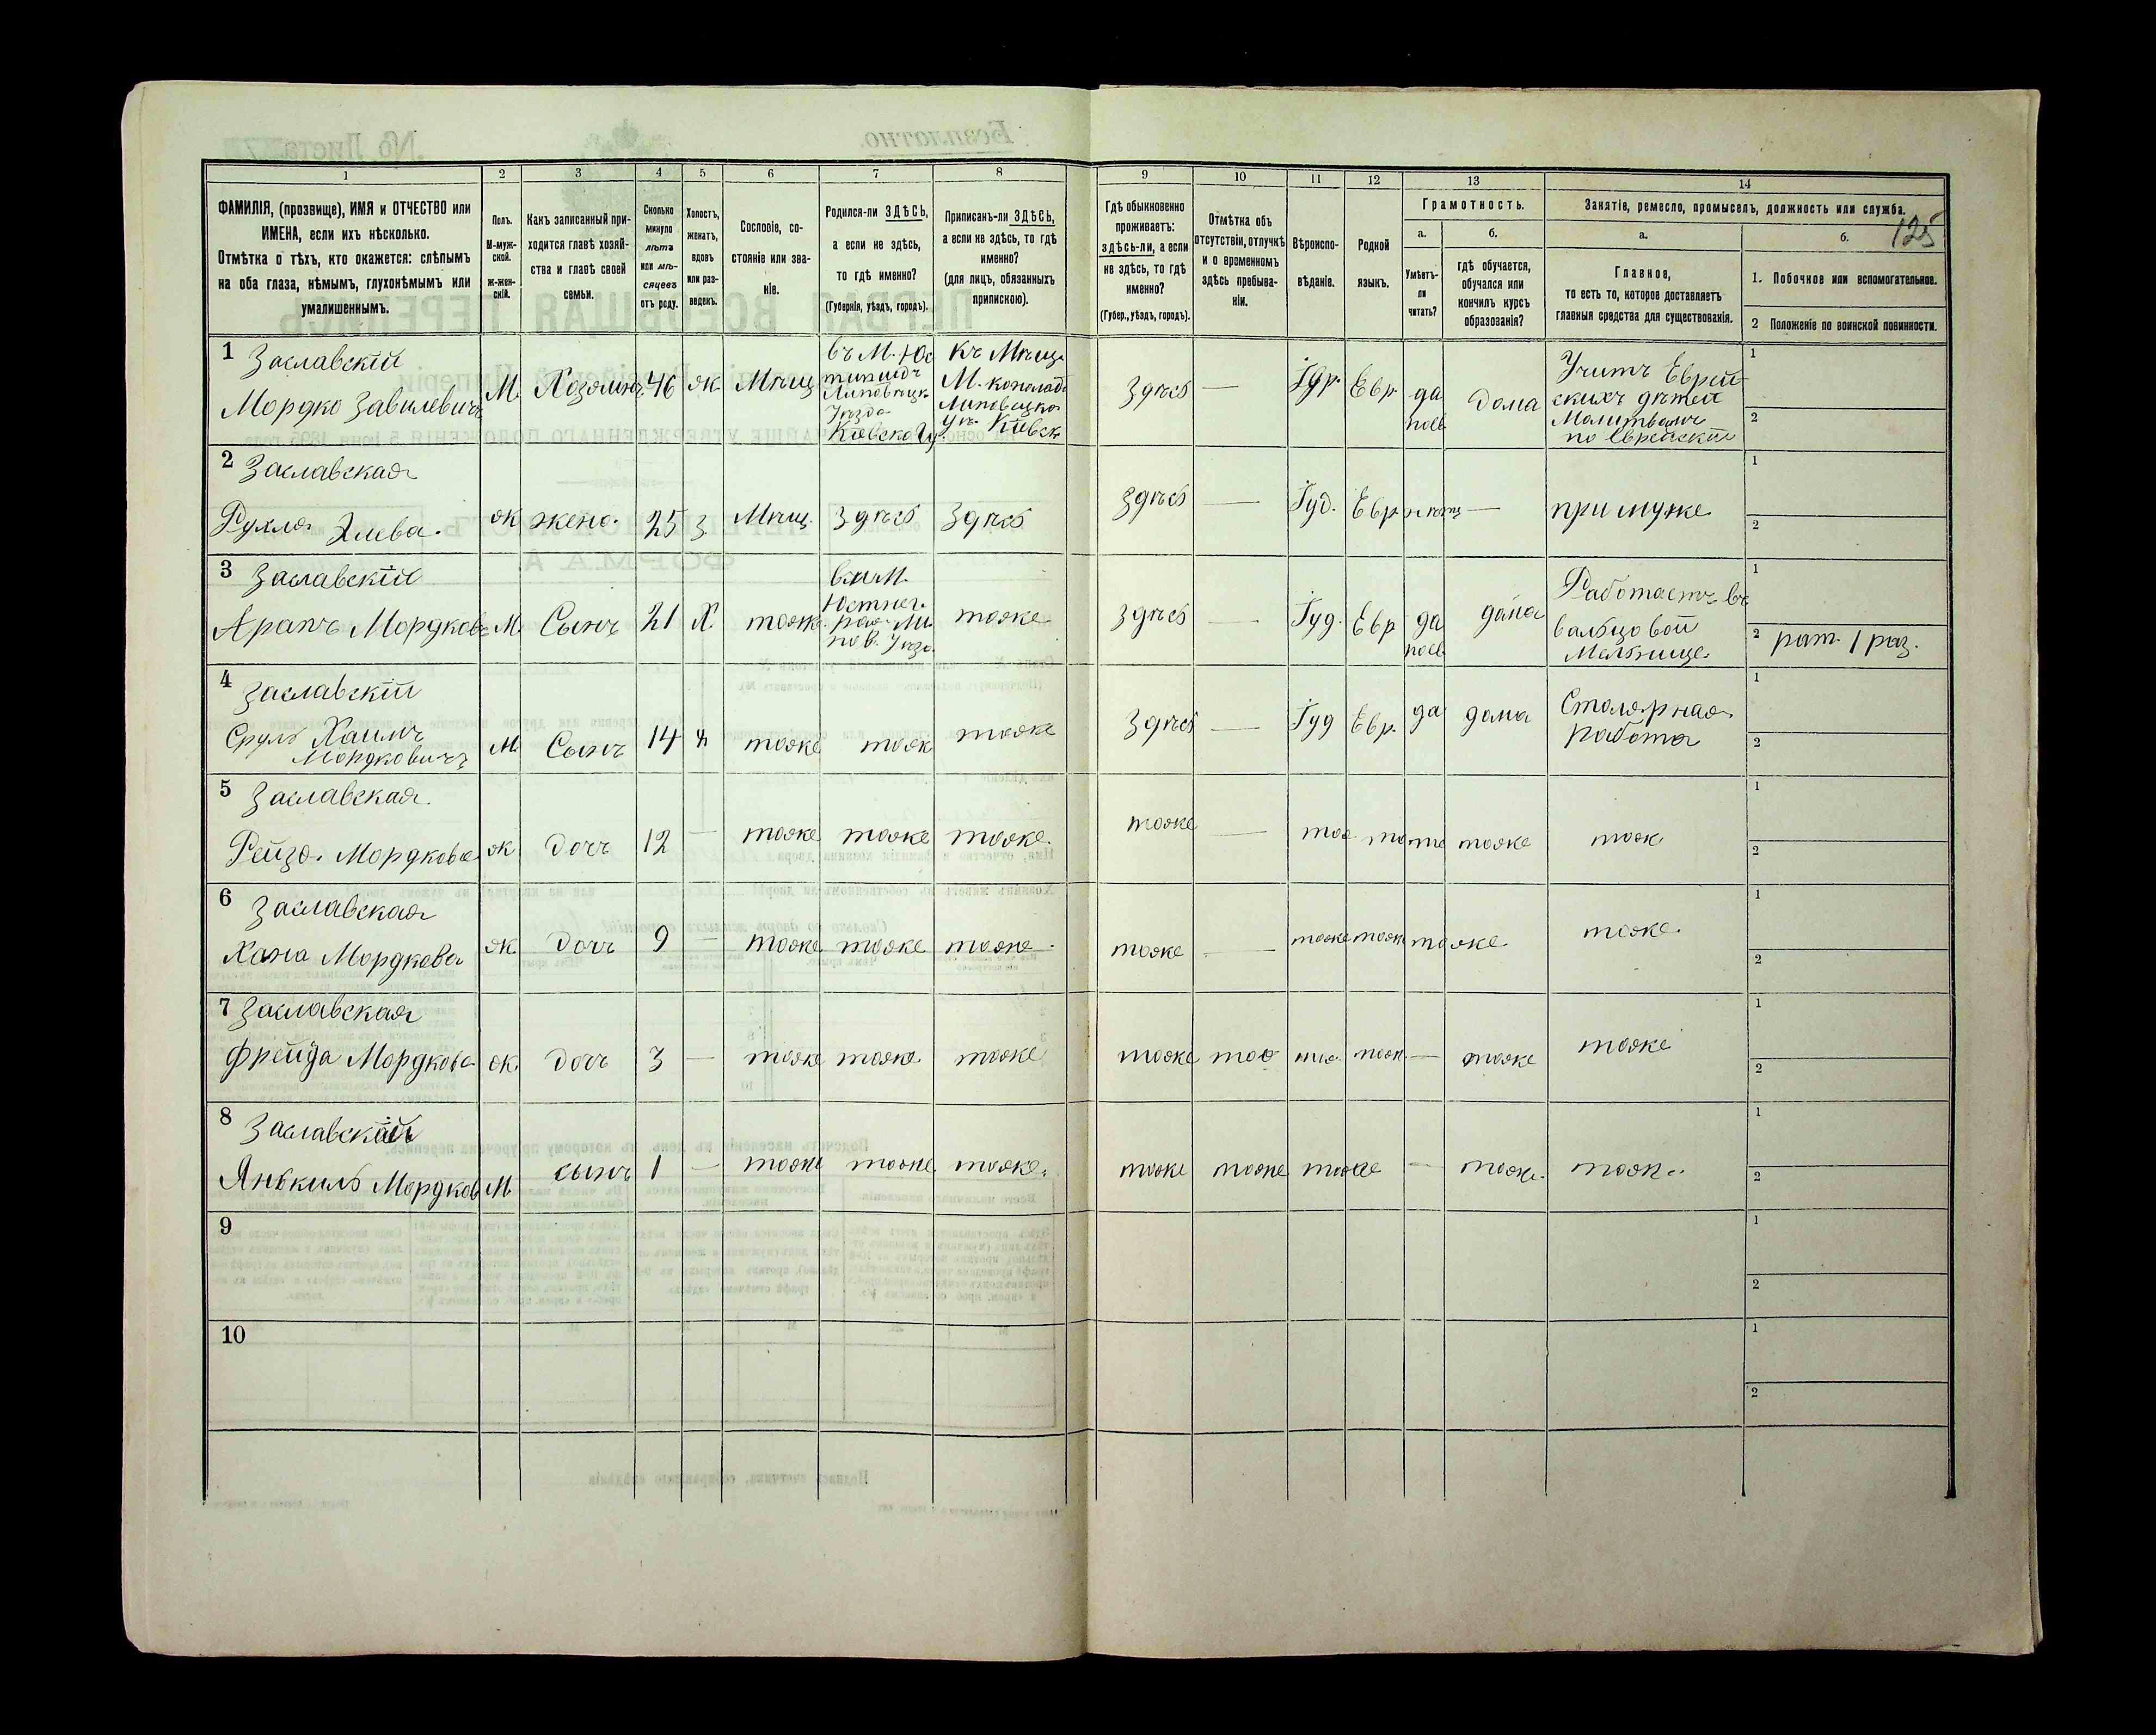 1 2 3 4 5 6 7 8 9 10 11 12 13 14
ФАМИЛІЯ, (прозвище), ИМЯ и ОТЧЕСТВО или
ИМЕНА, если ихъ нѣсколько.
Отмѣтка о тѣхъ, кто окажется: слѣпымъ
на оба глаза, нѣмымъ, глухонѣмымъ или
умалишеннымъ.
Полъ.
М-муж-
ской.
Ж-жен-
скій.
Какъ записанный при-
ходится главѣ хозяй-
ства и главѣ своей
семьи.
Сколько
минуло
лѣтъ
или мѣ-
сяцевъ
отъ роду.
Холостъ,
женатъ,
вдовъ
или раз-
веденъ.
Сословіе, со-
стояніе или зва-
ніе.
Родился-ли ЗДѢСЬ,
а если не здѣсь,
то гдѣ именно?
(Губернія, уѣздъ, городъ).
Приписанъ-ли ЗДѢСЬ,
а если не здѣсь, то гдѣ
именно?
(для лицъ, обязанныхъ
припискою).
Гдѣ обыкновенно
проживаетъ:
здѣсь-ли, а если
не здѣсь, то гдѣ
именно?
(Губер., уѣздъ, городъ).
Отмѣтка объ
отсутствіи, отлучкѣ
и о временномъ
здѣсь пребыва-
ніи.
Вѣроиспо-
вѣданіе.
Родной
языкъ.
Грамотность.
а.
Умѣетъ-
ли
читать?
б.
гдѣ обучается,
обучался или
кончилъ курсъ
образованія?
Занятіе, ремесло, промыселъ, должность или служба.
125
а.
Главное,
то есть то, которое доставляетъ
главныя средства для существованія.
б.
1. Побочное или вспомогательное.
2 Положеніе по воинской повинности.
1 Заславскій
Мордко Завилевичъ
М.
Хозяинъ
46
ж.
Мѣщ
въ М.
Липовецк
Уѣзда
Кіевской Гу
Къ Мѣщ.
М.
Липовецко
Уѣ. Кіевск
Здѣсь
—
Іуд.
Евр.
да
дома
Учитъ Еврей
скихъ дѣтей
Молитвамъ
по Еврейски
1
2
2 Заславская
Рухля
ж
жена.
25
з.
Мѣщ.
Здѣсь
Здѣсь
Здѣсь
—
Іуд.
Евр.
—
при мужѣ
1
2
3 Заславскій
Аронъ Мордков
М
Сынъ
21
Х.
тоже
тоже
Здѣсь
—
Іуд.
Евр
да
дома
Работаетъ въ
вальцовой
Мельнице
1
2 рат. 1 раз.
4 Заславскій
Сруль Хаимъ
Мордковичъ
М.
Сынъ
14
х
тоже
тож
тоже
Здѣсь
—
Іуд
Евр.
да
дома
Столярная
работа
1
2
5 Заславская.
Рейзя Мордкова
ж
Дочъ
12
—
тоже
тоже
тоже.
тоже
—
тож
то
то
тоже
тож
1
2
6 Заславская
Хана Мордкова
ж.
Дочъ
9
—
тоже
тоже
тоже.
тоже
—
тоже
тоже
тоже
тоже.
1
2
7 Заславская
Фрейда Мордкова
ж.
Дочъ
3
—
тоже
тоже
тоже
тоже
тож
тож
тож
—
тоже
тоже
1
2
8 Заславскій
Янькиль Мордков
М.
сынъ
1
—
тоже
тоже
тоже.
тоже
тоже
тоже
—
тоже.
тоже
1
2
9
1
2
10
1
2